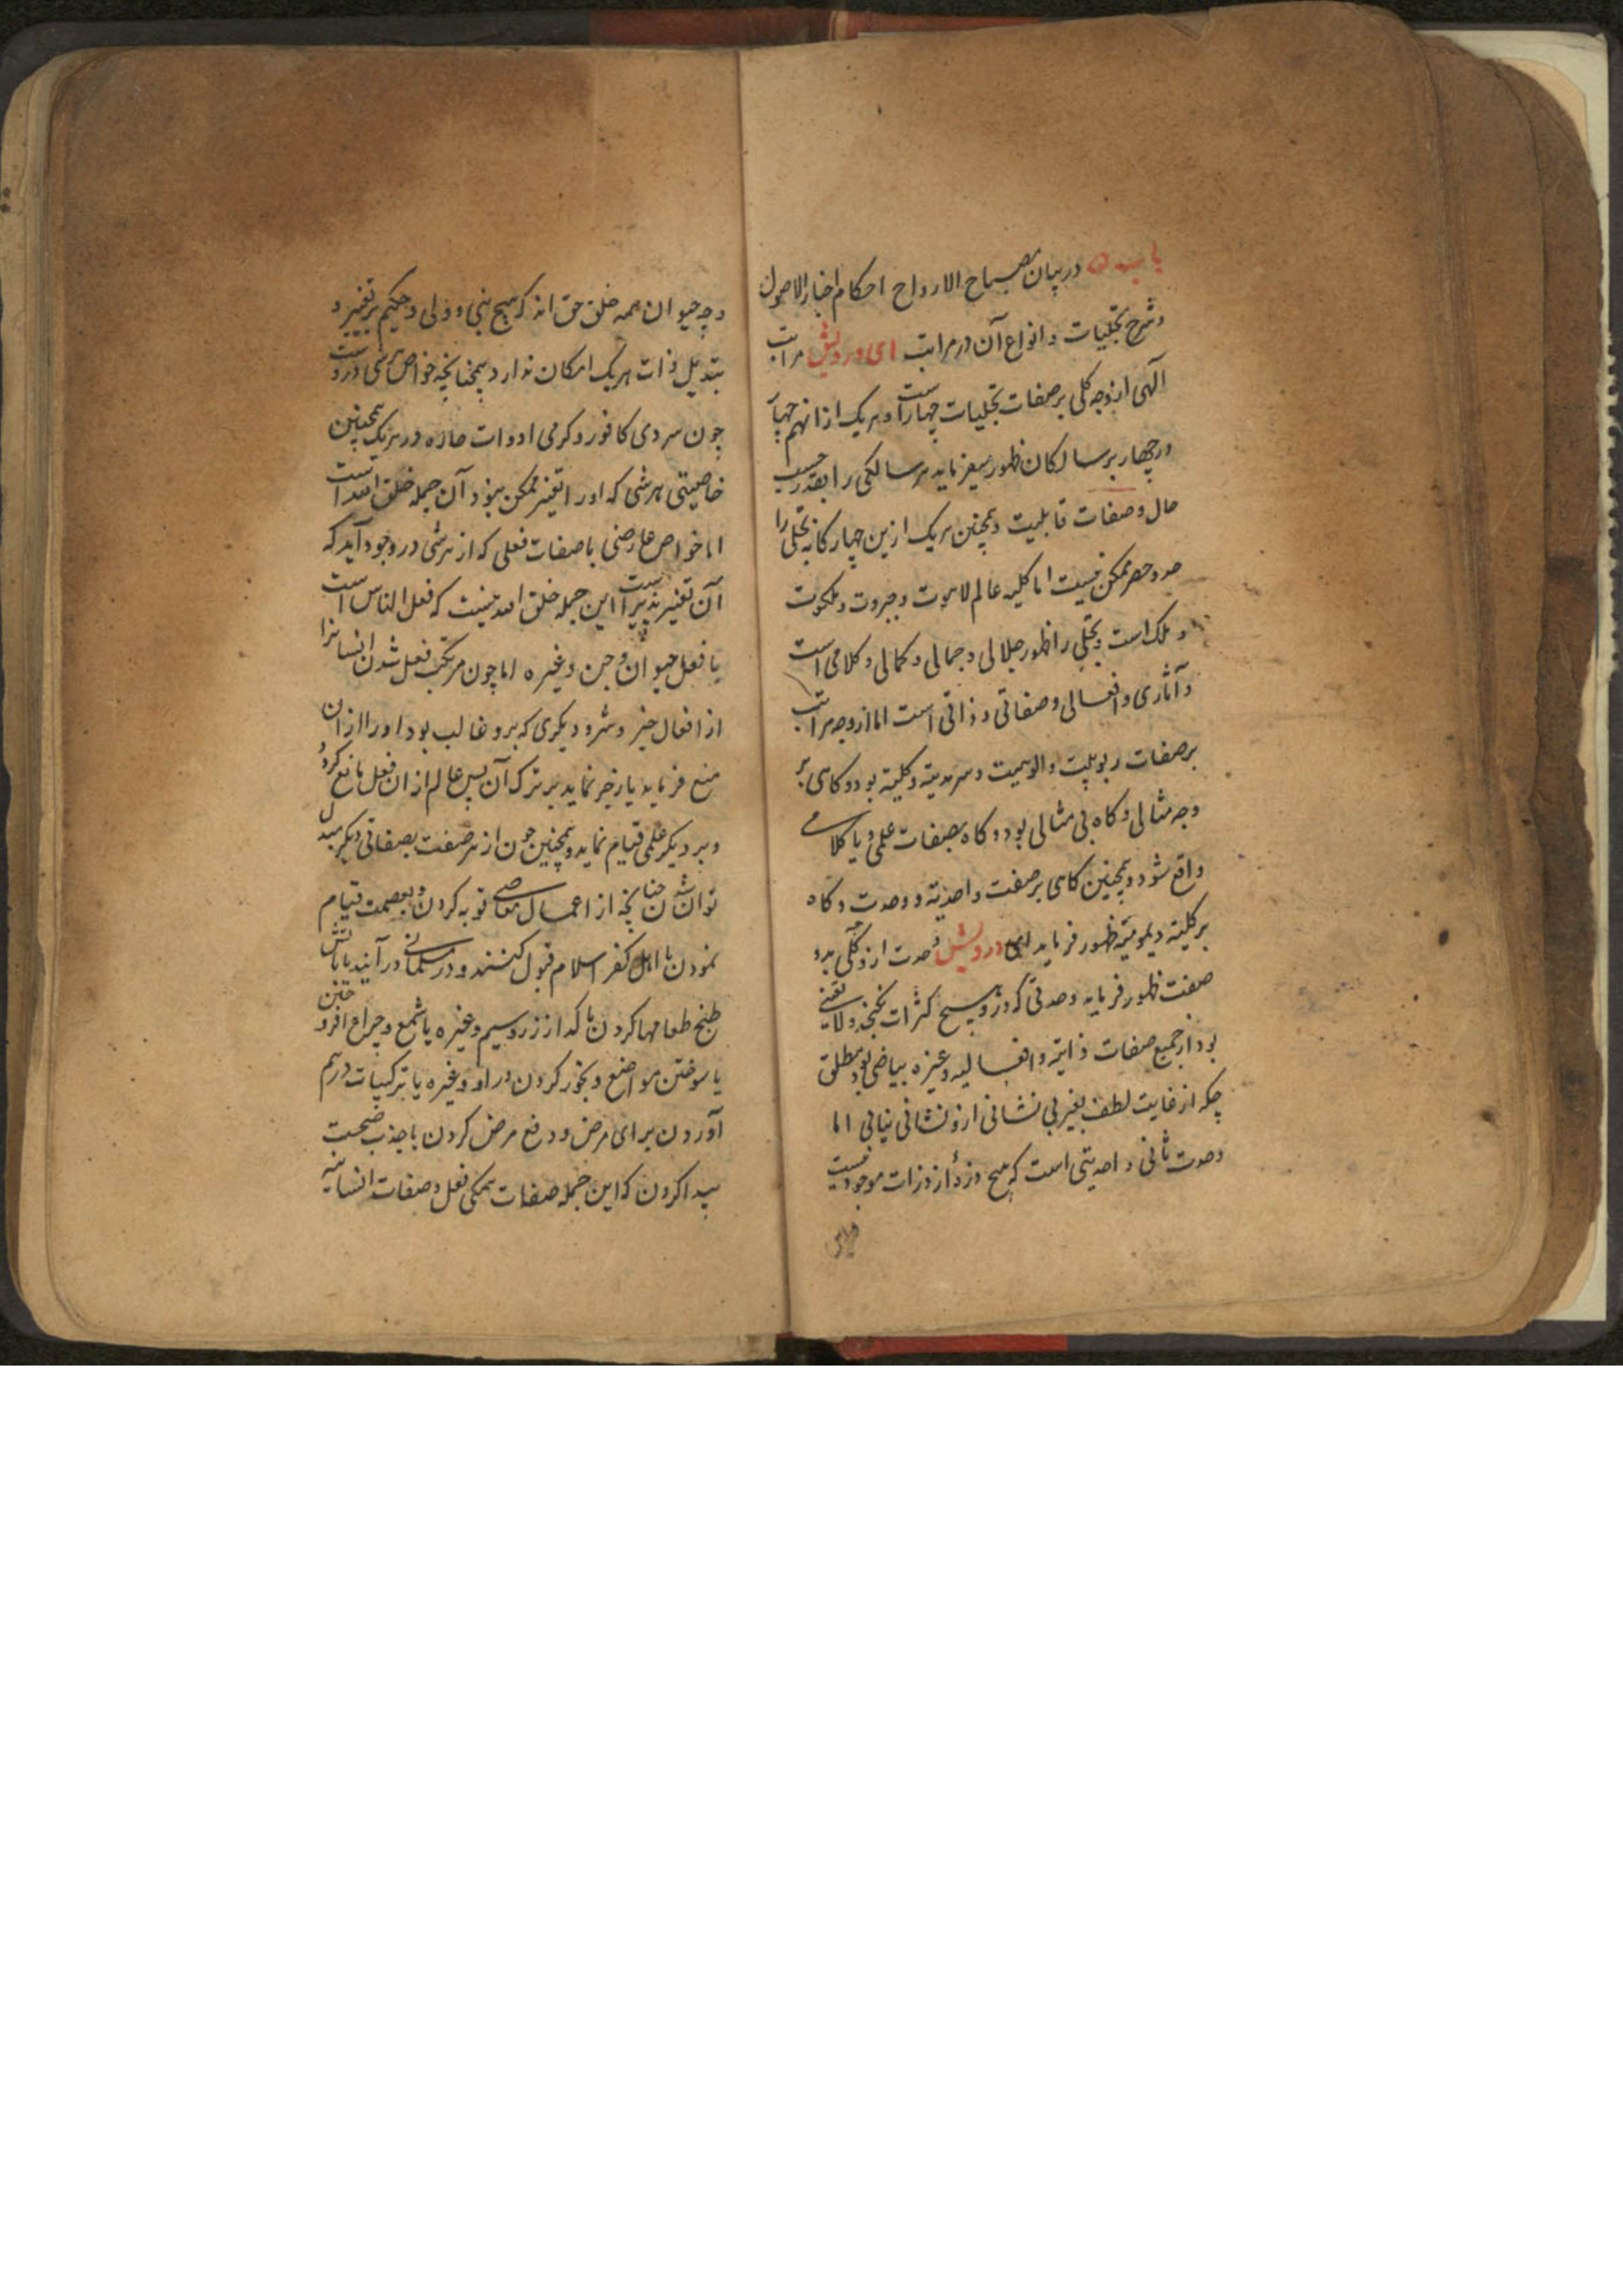 در بیان مصباح الارواح احکام اخبار الاصول
وشرح تجلیات و انواع آن در مراتب ای درویش مراتب
الهی از وجه کلی بر صفات تجلیات چهار است و هر یک ازانهم چهار
در چهار بر سالکان ظهور میفرماید هر سالکی را بقدر حسب
حال وصفات قابلیت وهمچنین هر یک ازین چهار کانه تجلی را
حد وحصر ممکن نیست اما کلیه عالم لاهوت وجبروت وملکوت
وملک است وتجلی را ظهور جلالی وجمالی وکمالی وکلامی است
وآثاری وافعالی وصفاتی وذاتی است اما از وجه مراتب
بر صفات ربوبیت والوهیت وسرمدیته وکلیته بود وکاهی بر
وجه مثالی وکاه بی مثالی بود وکاه بصفات علمی ویا کلامی
واقع شود وهمچنین کاهی بر صفت واحدیته ووحدت وکاه
بر کلیته دیمومیته ظهور فرماید ای درویش وحدت از وجه کلی بدو
صفت ظهور فرماید وحدتی که درو هیچ کثرات نکنجد ولا تعینی
بود از جمیع صفات ذاتیه وافعالیه وغیره بیاضی بود مطلق
چکه از غایت لطف بغیر بی نشانی ازو نشانی نیابی اما
وحدت ثانی واحدیتی است که هیچ ذره از ذرات موجود نیست
وچه حیوان همه خلق حق اند که هیچ نبی و ولی وحکیم بر تغییر و
تبدیل ذات هر یک امکان ندارد همچنانچه خواص هر شی دروست
چون سردی کافور وکرمی ادوات حاره در هر یک همچنین
خاصیتی هر شی که اورا تغیر ممکن نبود آن جمله خلق الله است
اما خواص عارضی یا صفات فعلی که از هر شی در وجود آید که
آن تغییر پذیر است این جمله خلق الله نیست که فعل الناس است
یا فعل حیوان وجن وغیره اما چون مرتکب فعل شدن انسانرا
از افعال خیر وشر ودیکری که برو غالب بود اورا ازان
منع فرماید یا زجر نماید بر ترک آن پس عالم ازان فعل مانع کردد
وبر دیکر علمی قیام نماید وهمچنین چون از هر صفت بصفاتی دیکر مبدل
توان شدن چنانچه از اعمال معاصی توبه کردن وبعصمت قیام
نمودن یا اهل کفر اسلام قبول کنند ودر مسلمانی در آیند یا باتش
طبخ طعامها کردن یا کداز زر وسیم وغیره یا شمع وچراغ افروختن
یا سوختن مواضع وبخور کردن در او وغیره یا ترکیبات درهم
آوردن برای مرض ودفع مرض کردن یا جذب صحت
پیدا کردن که این جمله صفات همکی فعل وصفات انسانیه